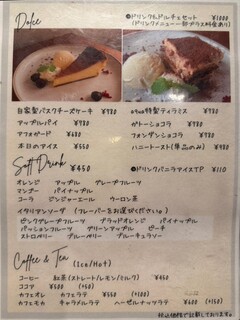 Dolce
●ドリンク&ドルチェセット ¥1000
(ドリンクメニュー一部プラス料金あり)
自家製バスクチーズケーキ ¥930
アップルパイ ¥930
アフォガード ¥680
本日のアイス ¥550
特製ティラミス ¥930
ガトーショコラ ¥930
フォンダンショコラ ¥930
ハニートースト(単品のみ) ¥950
Soft Drink ¥450
●ドリンクバニラアイスTP ¥150
オレンジ アップル グレープフルーツ
マンゴー パイナップル
コーラ ジンジャーエール ウーロン茶
イタリアンソーダ (フレーバーをお選びください)
ピンクグレープフルーツ ブラッドオレンジ パイナップル
パッションフルーツ グリーンアップル ピーチ
ストロベリー ブルーベリー ブルーキュラソー
Coffee & Tea (Ice/Hot)
コーヒー 紅茶(ストレート/レモン/ミルク) ¥450
ココア ¥500 (+50)
カフェオレ カフェラテ ¥550 (+100)
カフェモカ キャラメルラテ ヘーゼルナッツラテ ¥600 (+150)
税込価格で記載しております。